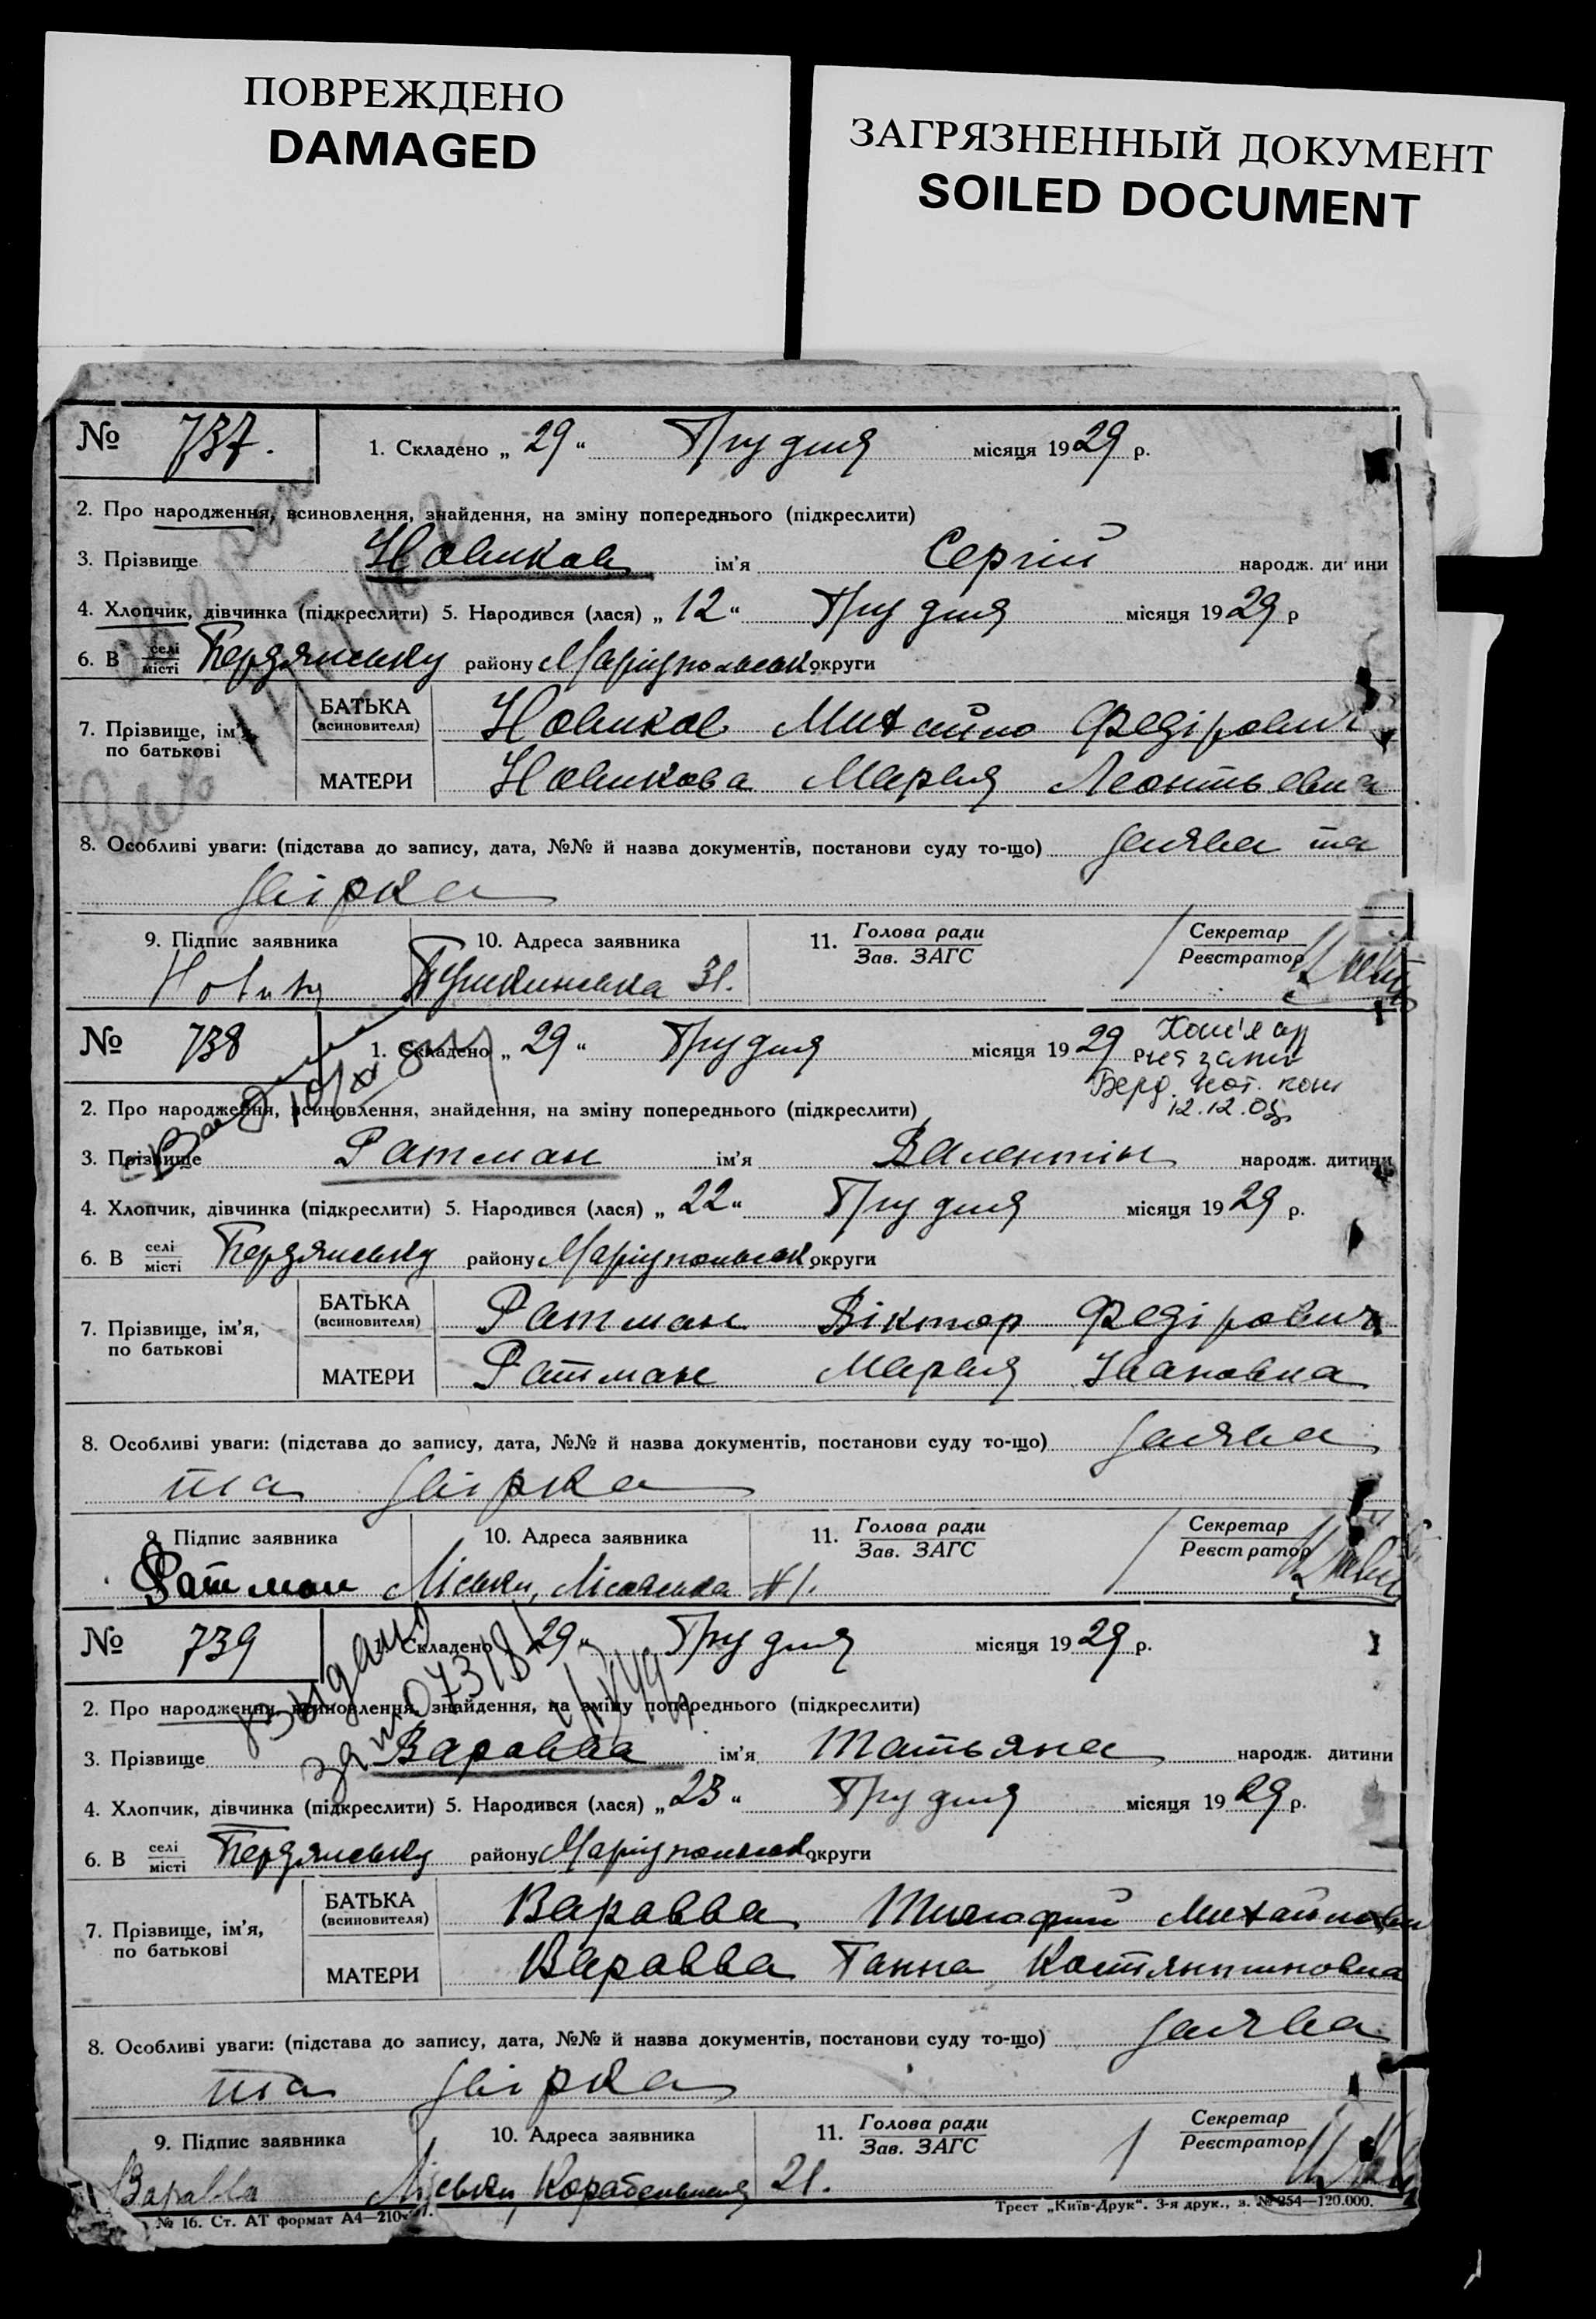 ПОВРЕЖДЕНО
DAMAGED
ЗАГРЯЗНЕННЫЙ ДОКУМЕНТ
SOILED DOCUMENT
№ 737. 1. Складено „ 29 “ Грудня місяця 1929 р.
2. Про народження, всиновлення, знайдення, на зміну попереднього (підкреслити)
3. Прізвище Новиков ім'я Сергій народж. ди ини
4. Хлопчик, дівчинка (підкреслити) 5. Народився (лася) „ 12 “ Грудня місяця 1929 р
6. В селі місті Бердянську району Маріупольськ. округи
7. Прізвище, ім'я, по батькові
БАТЬКА (всиновителя) Новиков Михайло Федірович
МАТЕРИ Новикова Марья Леонтьевна
8. Особливі уваги: (підстава до запису, дата, №№ й назва документів, постанови суду то-що) Заява та
звірка
9. Підпис заявника 10. Адреса заявника 11. Голова ради Зав. ЗАГС Секретар Реєстратор
Пушкинська 31.
№ 738 1. Складено „ 29 “ Грудня місяця 1929
Копія
Берд. нот. кон
12.12.05
2. Про народження, всиновлення, знайдення, на зміну попереднього (підкреслити)
3. Прізвище Ратман ім'я Валентін народж. дитини
4. Хлопчик, дівчинка (підкреслити) 5. Народився (лася) „ 22 “ Грудня місяця 1929 р.
6. В селі місті Бердянську району Маріупольськ. округи
7. Прізвище, ім'я, по батькові
БАТЬКА (всиновителя) Ратман Віктор Федірович
МАТЕРИ Ратман Марья Івановна
8. Особливі уваги: (підстава до запису, дата, №№ й назва документів, постанови суду то-що) Заява
та звірка
9. Підпис заявника 10. Адреса заявника 11. Голова ради Зав. ЗАГС Секретар Реєстратор
Ратман Ліски, №1.
№ 739 Складено 29 “ Грудня місяця 1929 р.
Видано
2. Про народження, всиновлення, знайдення, на зміну попереднього (підкреслити)
3. Прізвище Варавва ім'я Татьяна народж. дитини
4. Хлопчик, дівчинка (підкреслити) 5. Народився (лася) „ 23 “ Грудня місяця 1929 р.
6. В селі місті Бердянську району Маріупольськ. округи
7. Прізвище, ім'я, по батькові
БАТЬКА (всиновителя) Варавва Тимофий Михайлович
МАТЕРИ Варавва Ганна Костянтиновна
8. Особливі уваги: (підстава до запису, дата, №№ й назва документів, постанови суду то-що) Заява
та звірка
9. Підпис заявника 10. Адреса заявника 11. Голова ради Зав. ЗАГС Секретар Реєстратор
Варавва Ліски, Корабельная 21.
№ 16. Ст. АТ формат А4—210 Трест „Київ-Друк“. 3-я друк., з. № 254—120.000.